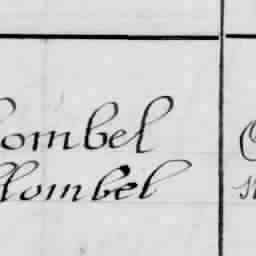 ombel
llombel